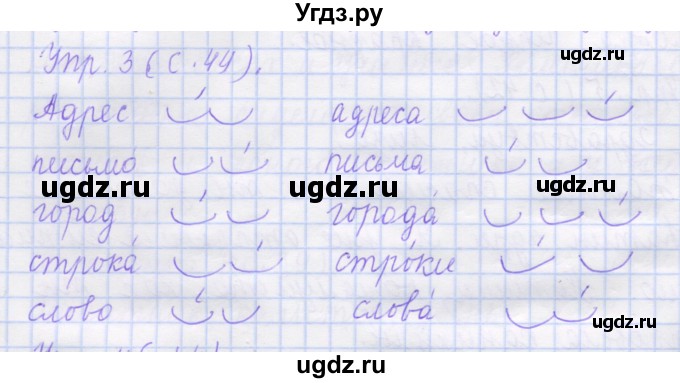 Угдз.ру
Упр. 3 (с. 44).
Адрес адреса
письмо письма
город города́
строка́ стро́ки
слово слова́
ugdz.ru
ugdz.ru
ugdz.ru
ugdz.ru
ugdz.ru
ugdz.ru
ugdz.ru